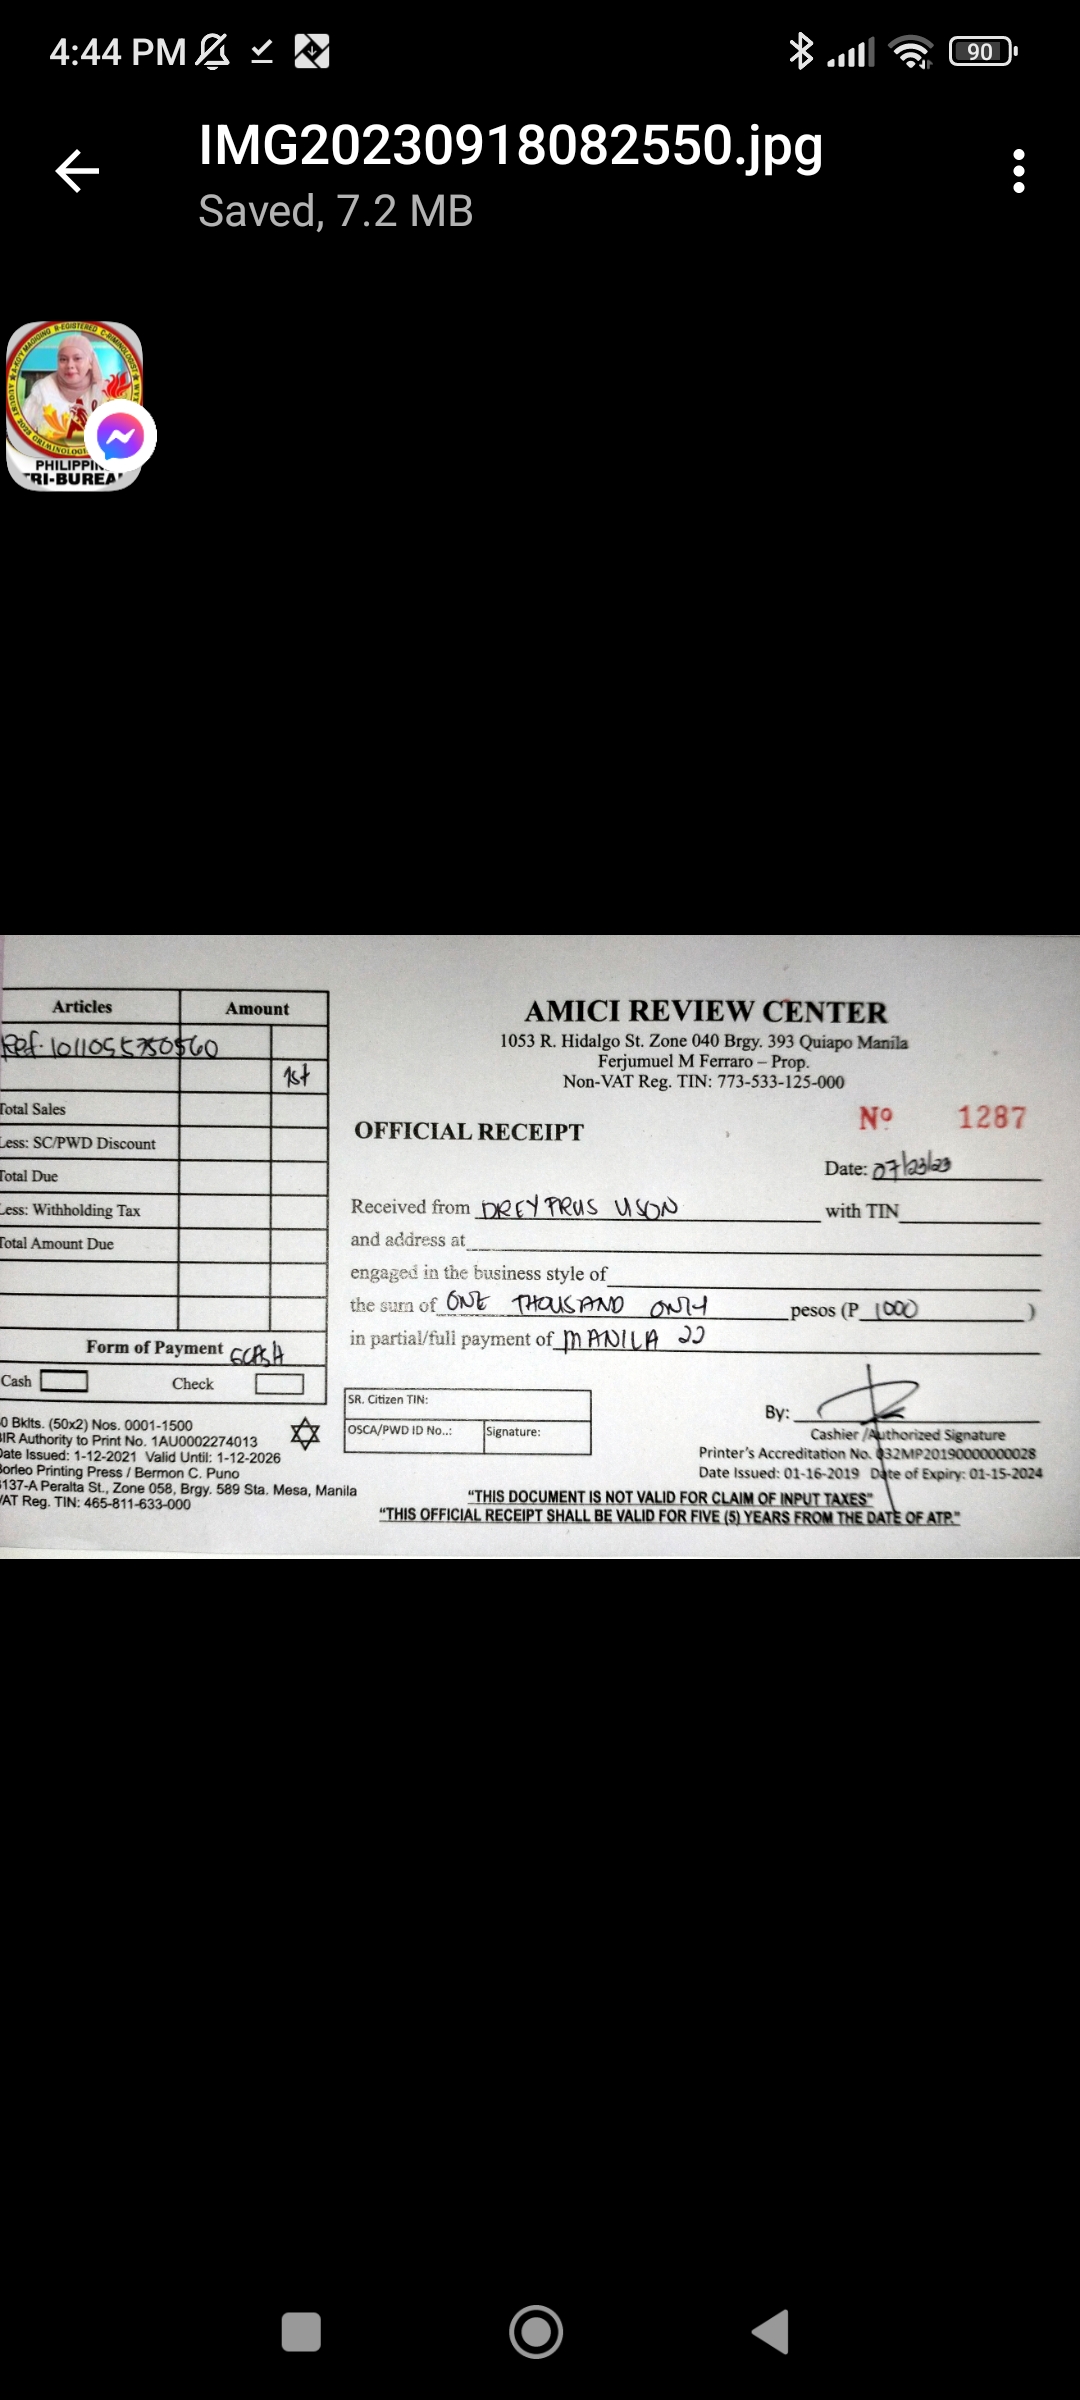 4:44 PM
90
IMG20230918082550.jpg
Saved, 7.2 MB
PHILIPPIN
TRI-BUREA
Articles Amount
Ref. 1011055750560
1st
Total Sales
Less: SC/PWD Discount
Total Due
Less: Withholding Tax
Total Amount Due
Form of Payment GCASH
Cash Check
0 Bklts. (50x2) Nos. 0001-1500
BIR Authority to Print No. 1AU0002274013
Date Issued: 1-12-2021 Valid Until: 1-12-2026
Borleo Printing Press / Bermon C. Puno
137-A Peralta St., Zone 058, Brgy. 589 Sta. Mesa, Manila
VAT Reg. TIN: 465-811-633-000
AMICI REVIEW CENTER
1053 R. Hidalgo St. Zone 040 Brgy. 393 Quiapo Manila
Ferjumuel M Ferraro – Prop.
Non-VAT Reg. TIN: 773-533-125-000
Nº 1287
OFFICIAL RECEIPT
Date: 07/23/23
Received from DREYPRUS USON with TIN
and address at
engaged in the business style of
the sum of ONE THOUSAND ONLY pesos (P 1000 )
in partial/full payment of MANILA 22
SR. Citizen TIN:
OSCA/PWD ID No..: Signature:
By:
Cashier /Authorized Signature
Printer's Accreditation No. 032MP20190000000028
Date Issued: 01-16-2019 Date of Expiry: 01-15-2024
"THIS DOCUMENT IS NOT VALID FOR CLAIM OF INPUT TAXES"
"THIS OFFICIAL RECEIPT SHALL BE VALID FOR FIVE (5) YEARS FROM THE DATE OF ATP."